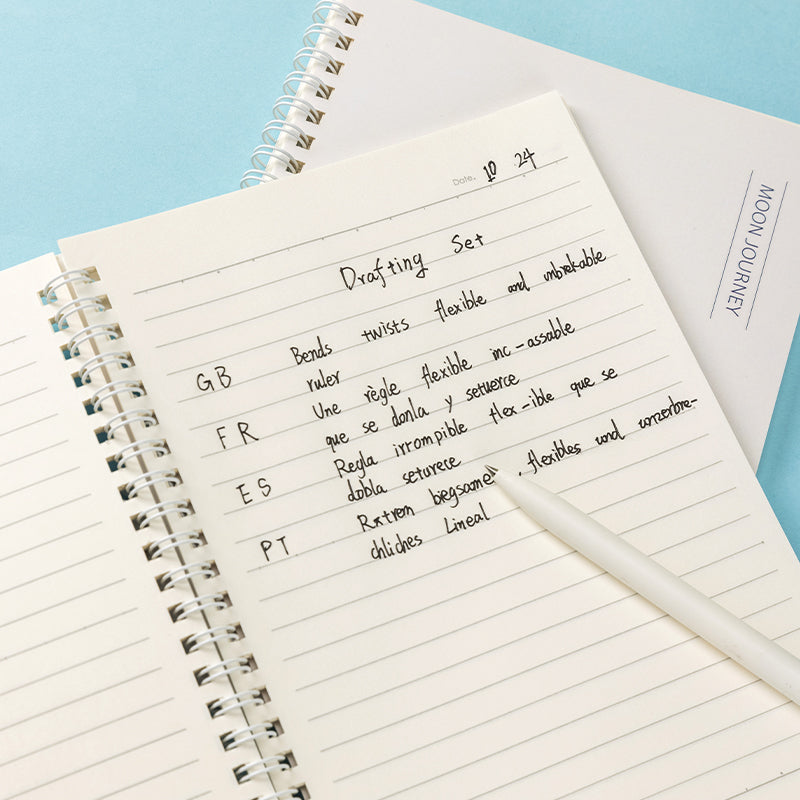 Date. 10 24
Drafting Set
GB Bends twists flexible and unbrekable
ruler
FR Une règle flexible inc-assable
que se donla y setuerce
ES Regla irrompible flex-ible que se
dobla seturece
PT Rxtrem biegsames, flexibles und unzerbre-
chliches Lineal
MOON JOURNEY